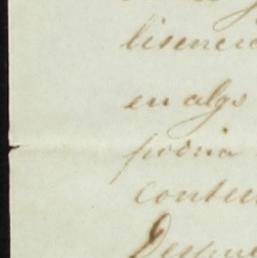 lisencia
en algo
podria
conten
Despue